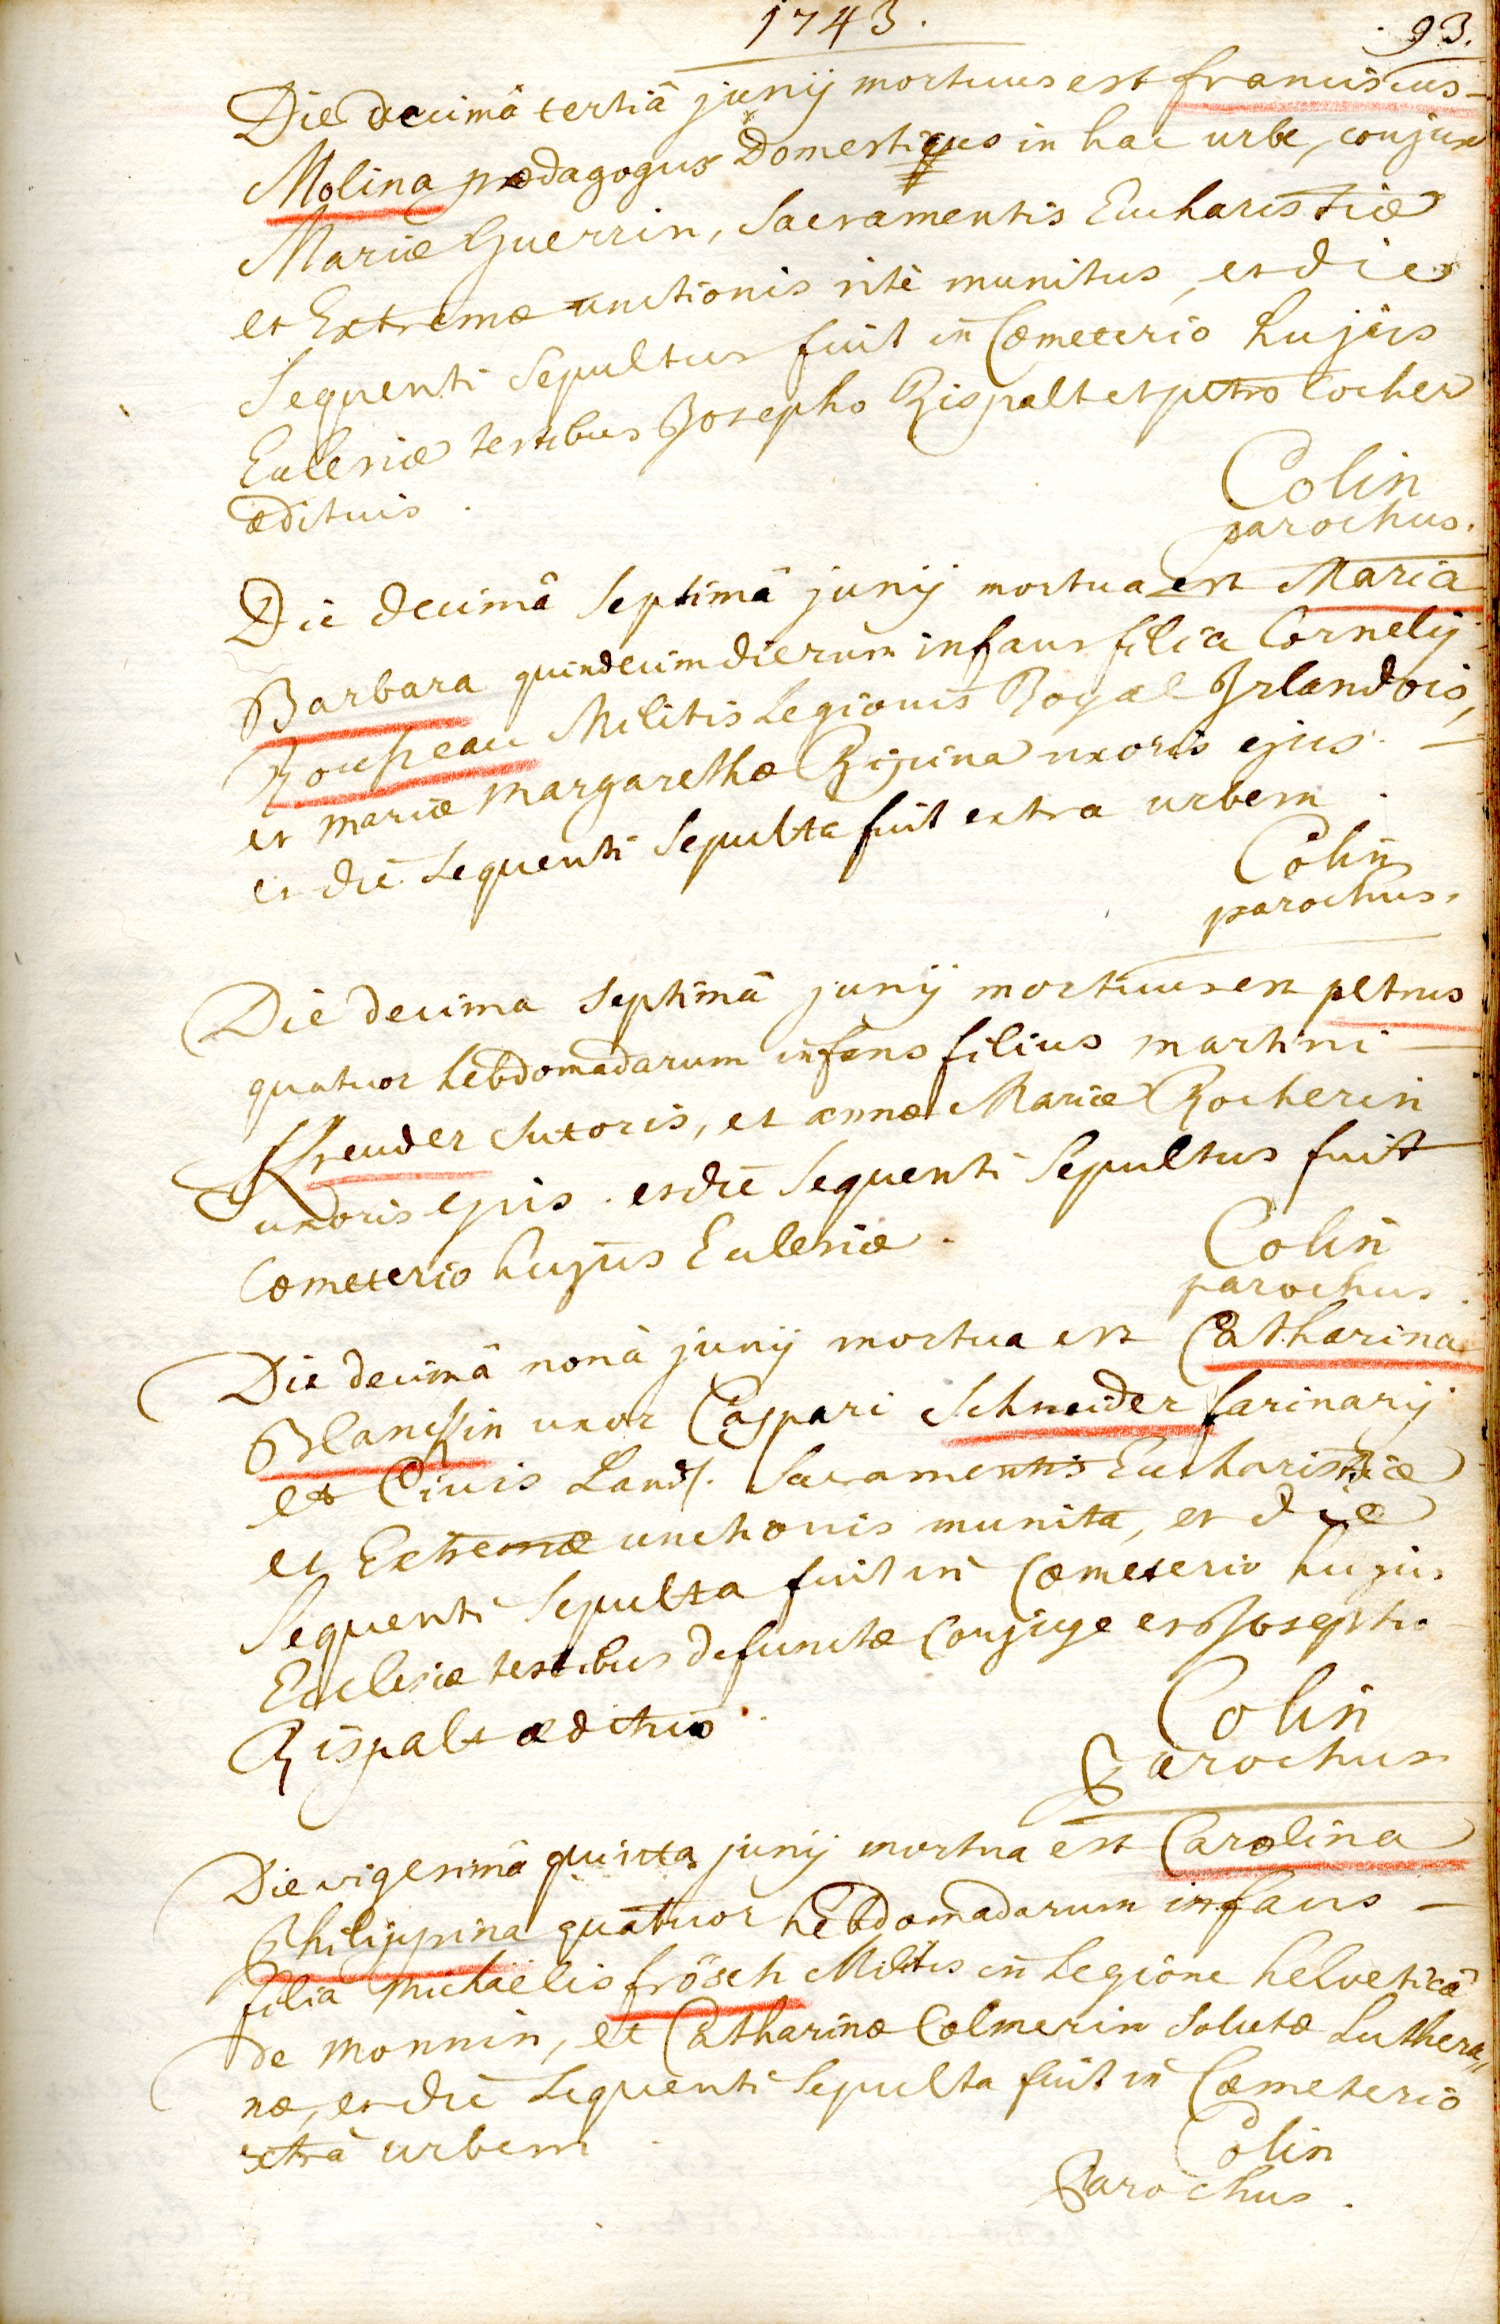 1743.
93.
Die decimâ tertiâ junij mortuus est franciscus
Molina pædagogus Domesticus in hac urbe, conjux
Mariæ Guerrin, Sacramentis Eucharistiæ
et Extremæ unctionis ritè munitus, et die
Sequenti Sepultus fuit in Cœmeterio hujus
Ecclesiæ testibus Josepho Rispalt et petro Cocher
ædituis.
Colin
parochus.
Die decimâ Septimâ junij mortua est Maria
Barbara quindecim dierum infans filia Cornelij
Militis Legionis Royal Irlandois,
et mariæ margarethæ uxoris ejus.
et die Sequenti Sepulta fuit extra urbem.
Colin
parochus.
Die decima Septimâ junij mortuus est petrus
quatuor hebdomadarum infans filius martini
Kreuder Sutoris, et annæ Mariæ Rocherin
uxoris ejus. et die Sequenti Sepultus fuit
Cœmeterio hujus Ecclesiæ.
Colin
parochus.
Die decimâ nonâ junij mortua est Catharina
uxor Caspari Schneider farinarij
et Civis Land. Sacramentis Eucharistiæ
et Extremæ unctionis munita, et die
Sequenti Sepulta fuit in Cœmeterio hujus
Ecclesiæ testibus defunctæ Conjuge et Josepho
Rispalt ædituo.
Colin
Parochus
Die vigesimâ quinta junij mortua est Carolina
Philippina quatuor hebdomadarum infans
filia michaëlis frösch Militis in Legione helveticâ
de monnin, et Catharinæ Colmerin Solutæ Luthera,,
næ, et die Sequenti Sepulta fuit in Cœmeterio
extrà urbem.
Colin
Parochus.